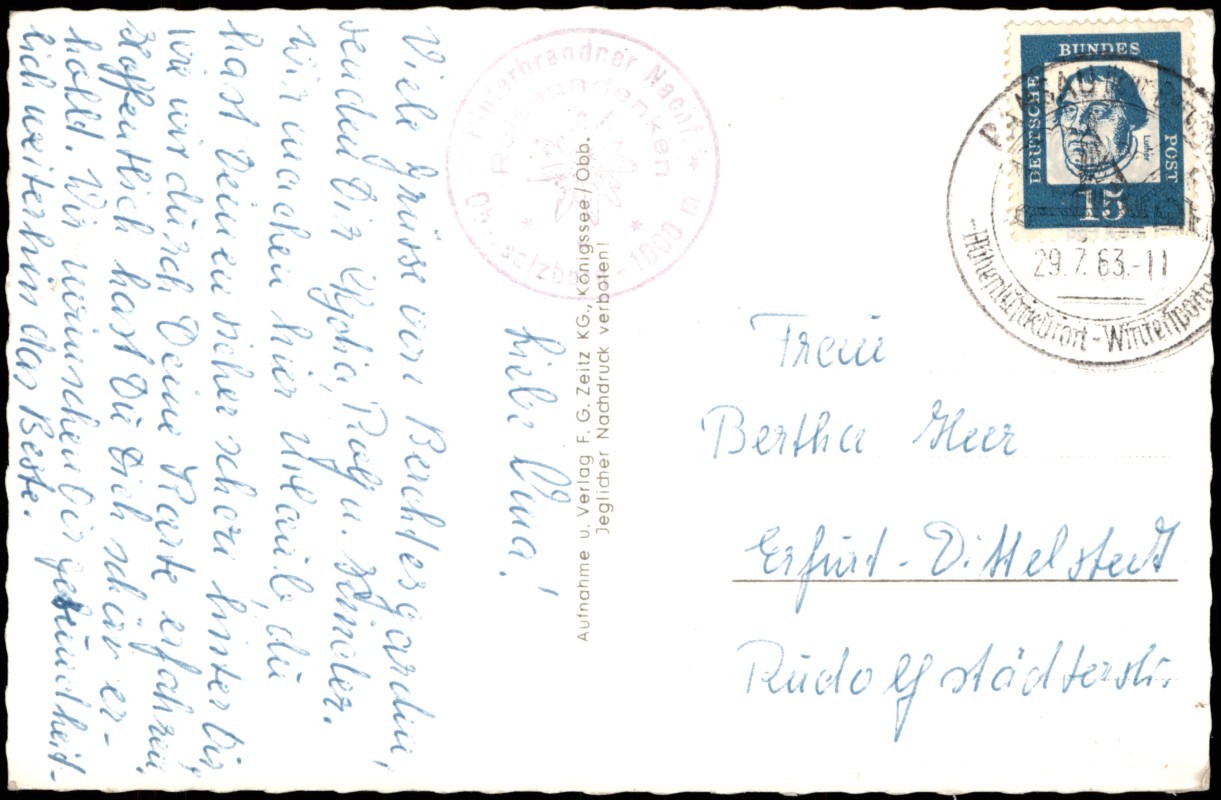 Liebe Oma!
Viele Grüsse von Berchtesgaden,
senden Dir Rolf u. Kinder.
wir machen hier Urlaub, du
hast Deinen sicher schon hinter Dir,
wie wir durch Deine Karte erfahren.
Hoffentlich hast Du Dich schön er-
hohlt. Wir wünschen Dir gesundheit-
lich weiterhin das Beste.
Hinterbrandner Nachf.
Reiseandenken
1000 m
Aufnahme u. Verlag F. G. Zeitz KG., Königssee/Obb.
Jeglicher Nachdruck verboten!
DEUTSCHE BUNDES POST
Luther
15
29.7.63.-11
Höhenluftkurort - Wintersport
Frau
Bertha Heer
Erfurt-Dittelstedt
Rudolfstädterstr.